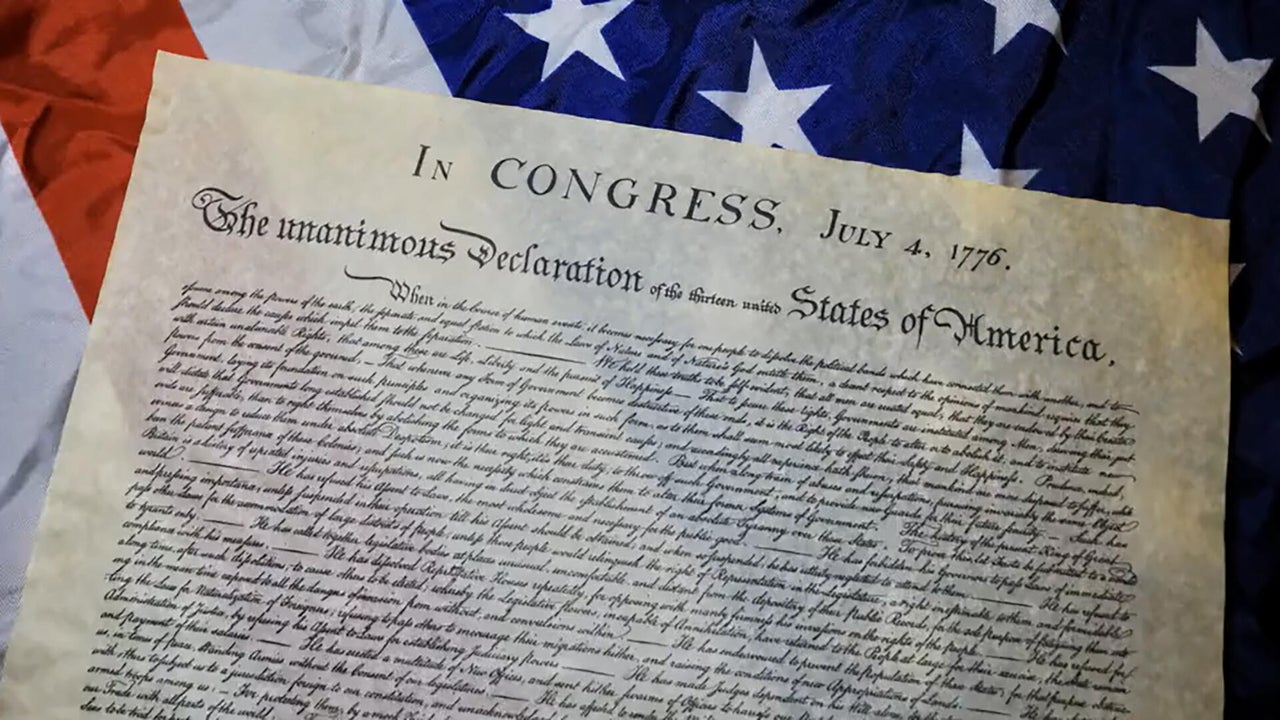 In CONGRESS, July 4, 1776.
The unanimous Declaration of the thirteen united States of America,
When in the Course of human events, it becomes necessary for one people to dissolve the political bands which have connected them with another, and to
assume among the powers of the earth, the separate and equal station to which the Laws of Nature and of Nature's God entitle them, a decent respect to the opinions of mankind requires that they
should declare the causes which impel them to the separation. We hold these truths to be self-evident, that all men are created equal, that they are endowed by their Creator
with certain unalienable Rights, that among these are Life, Liberty and the pursuit of Happiness.— That to secure these rights, Governments are instituted among Men, deriving their just
powers from the consent of the governed,— That whenever any Form of Government becomes destructive of these ends, it is the Right of the People to alter or to abolish it, and to institute new
Government, laying its foundation on such principles and organizing its powers in such form, as to them shall seem most likely to effect their Safety and Happiness. Prudence, indeed,
will dictate that Governments long established should not be changed for light and transient causes; and accordingly all experience hath shewn, that mankind are more disposed to suffer, while
evils are sufferable, than to right themselves by abolishing the forms to which they are accustomed. But when a long train of abuses and usurpations, pursuing invariably the same Object
evinces a design to reduce them under absolute Despotism, it is their right, it is their duty, to throw off such Government, and to provide new Guards for their future security.— Such has
been the patient sufferance of these Colonies; and such is now the necessity which constrains them to alter their former Systems of Government. The history of the present King of Great
Britain is a history of repeated injuries and usurpations, all having in direct object the establishment of an absolute Tyranny over these States. To prove this, let Facts be submitted to a candid
world. He has refused his Assent to Laws, the most wholesome and necessary for the public good. He has forbidden his Governors to pass Laws of immediate
and pressing importance, unless suspended in their operation till his Assent should be obtained; and when so suspended, he has utterly neglected to attend to them. He has refused to
pass other Laws for the accommodation of large districts of people, unless those people would relinquish the right of Representation in the Legislature, a right inestimable to them and formidable
to tyrants only. He has called together legislative bodies at places unusual, uncomfortable, and distant from the depository of their Public Records, for the sole purpose of fatiguing them into
compliance with his measures. He has dissolved Representative Houses repeatedly, for opposing with manly firmness his invasions on the rights of the people. He has refused for
a long time, after such dissolutions, to cause others to be elected; whereby the Legislative powers, incapable of Annihilation, have returned to the People at large for their exercise; the State remain
ing in the mean time exposed to all the dangers of invasion from without, and convulsions within. He has endeavoured to prevent the population of these States; for that purpose obstruc
ting the Laws for Naturalization of Foreigners; refusing to pass others to encourage their migrations hither, and raising the conditions of new Appropriations of Lands.
Administration of Justice, by refusing his Assent to Laws for establishing Judiciary powers. He has made Judges dependent on his Will alone,
and payment of their salaries. He has erected a multitude of New Offices, and sent hither swarms of Officers to harrass our
us, in times of peace, Standing Armies without the Consent of our legislatures. He has affected to render
with others to subject us to a jurisdiction foreign to our constitution, and unacknowledged
armed troops among us: For protecting them, by a mock
our Trade with all parts of the world: